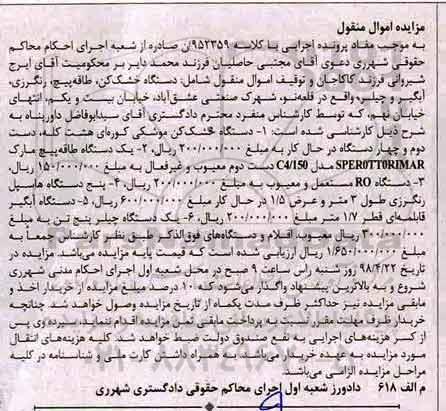 مزایده اموال منقول
به موجب مفاد پرونده اجرایی با کلاسه ۹۵۲۳۵۹ن صادره از شعبه اجرای احکام محاکم
حقوقی شهرری دعوی آقای مجتبی حاصلیان فرزند محمد دایر بر محکومیت آقای ایرج
شیروانی فرزند کاکاجان و توقیف اموال منقول شامل: دستگاه خشک‌کن، طاقه‌پیچ، رنگرزی،
آبگیر و چیلر، واقع در قلعه‌نو، شهرک صنعتی عشق‌آباد، خیابان بیست و یکم، انتهای
خیابان نهم، که توسط کارشناس منفرد محترم دادگستری آقای سیدابوفاضل داورپناه به
شرح ذیل کارشناسی شده است: ۱- دستگاه خشک‌کن موشکی کوره‌ای هشت کله، دست
دوم و چهار دستگاه در حال کار به مبلغ ۲۰۰/۰۰۰/۰۰۰ ریال، ۲- یک دستگاه طاقه‌پیچ مارک
SPEROTTORIMAR مدل C4/150 دست دوم معیوب و غیرفعال به مبلغ ۱۵۰/۰۰۰/۰۰۰ ریال،
۳- دستگاه RO مستعمل و معیوب به مبلغ ۲۰۰/۰۰۰/۰۰۰ ریال، ۴- پنج دستگاه هاسپل
رنگرزی طول ۳ متر و عرض ۱/۵ در حال کار مبلغ ۶۰۰/۰۰۰/۰۰۰ ریال، ۵- دستگاه آبگیر
قابلمه‌ای قطر ۱/۷ متر مبلغ ۲۰۰/۰۰۰/۰۰۰ ریال، ۶- یک دستگاه چیلر پنج تن به مبلغ
۳۰۰/۰۰۰/۰۰۰ ریال معیوب، اقلام و دستگاه‌های فوق‌الذکر طبق نظر کارشناس جمعاً به
مبلغ ۱/۶۵۰/۰۰۰/۰۰۰ ریال ارزیابی شده است که قیمت پایه مزایده می‌باشد. مزایده در
تاریخ ۹۸/۴/۲۲ روز شنبه راس ساعت ۹ صبح در محل شعبه اول اجرای احکام مدنی شهرری
شروع و به بالاترین پیشنهاد واگذار می‌شود که ۱۰ درصد مبلغ مزایده از خریدار اخذ و
مابقی مزایده نیز حداکثر ظرف مدت یکماه از تاریخ مزایده وصول خواهد شد. چنانچه
خریدار ظرف مهلت مقرر نسبت به پرداخت مابقی ثمن مزایده اقدام ننماید سپرده وی پس
از کسر هزینه‌های اجرایی به نفع صندوق دولت ضبط خواهد شد. کلیه هزینه‌های انتقال
مورد مزایده به عهده خریدار می‌باشد. به همراه داشتن کارت ملی و شناسنامه در کلیه
مراحل مزایده الزامی می‌باشد.
م الف ۶۱۸ دادورز شعبه اول اجرای محاکم حقوقی دادگستری شهرری